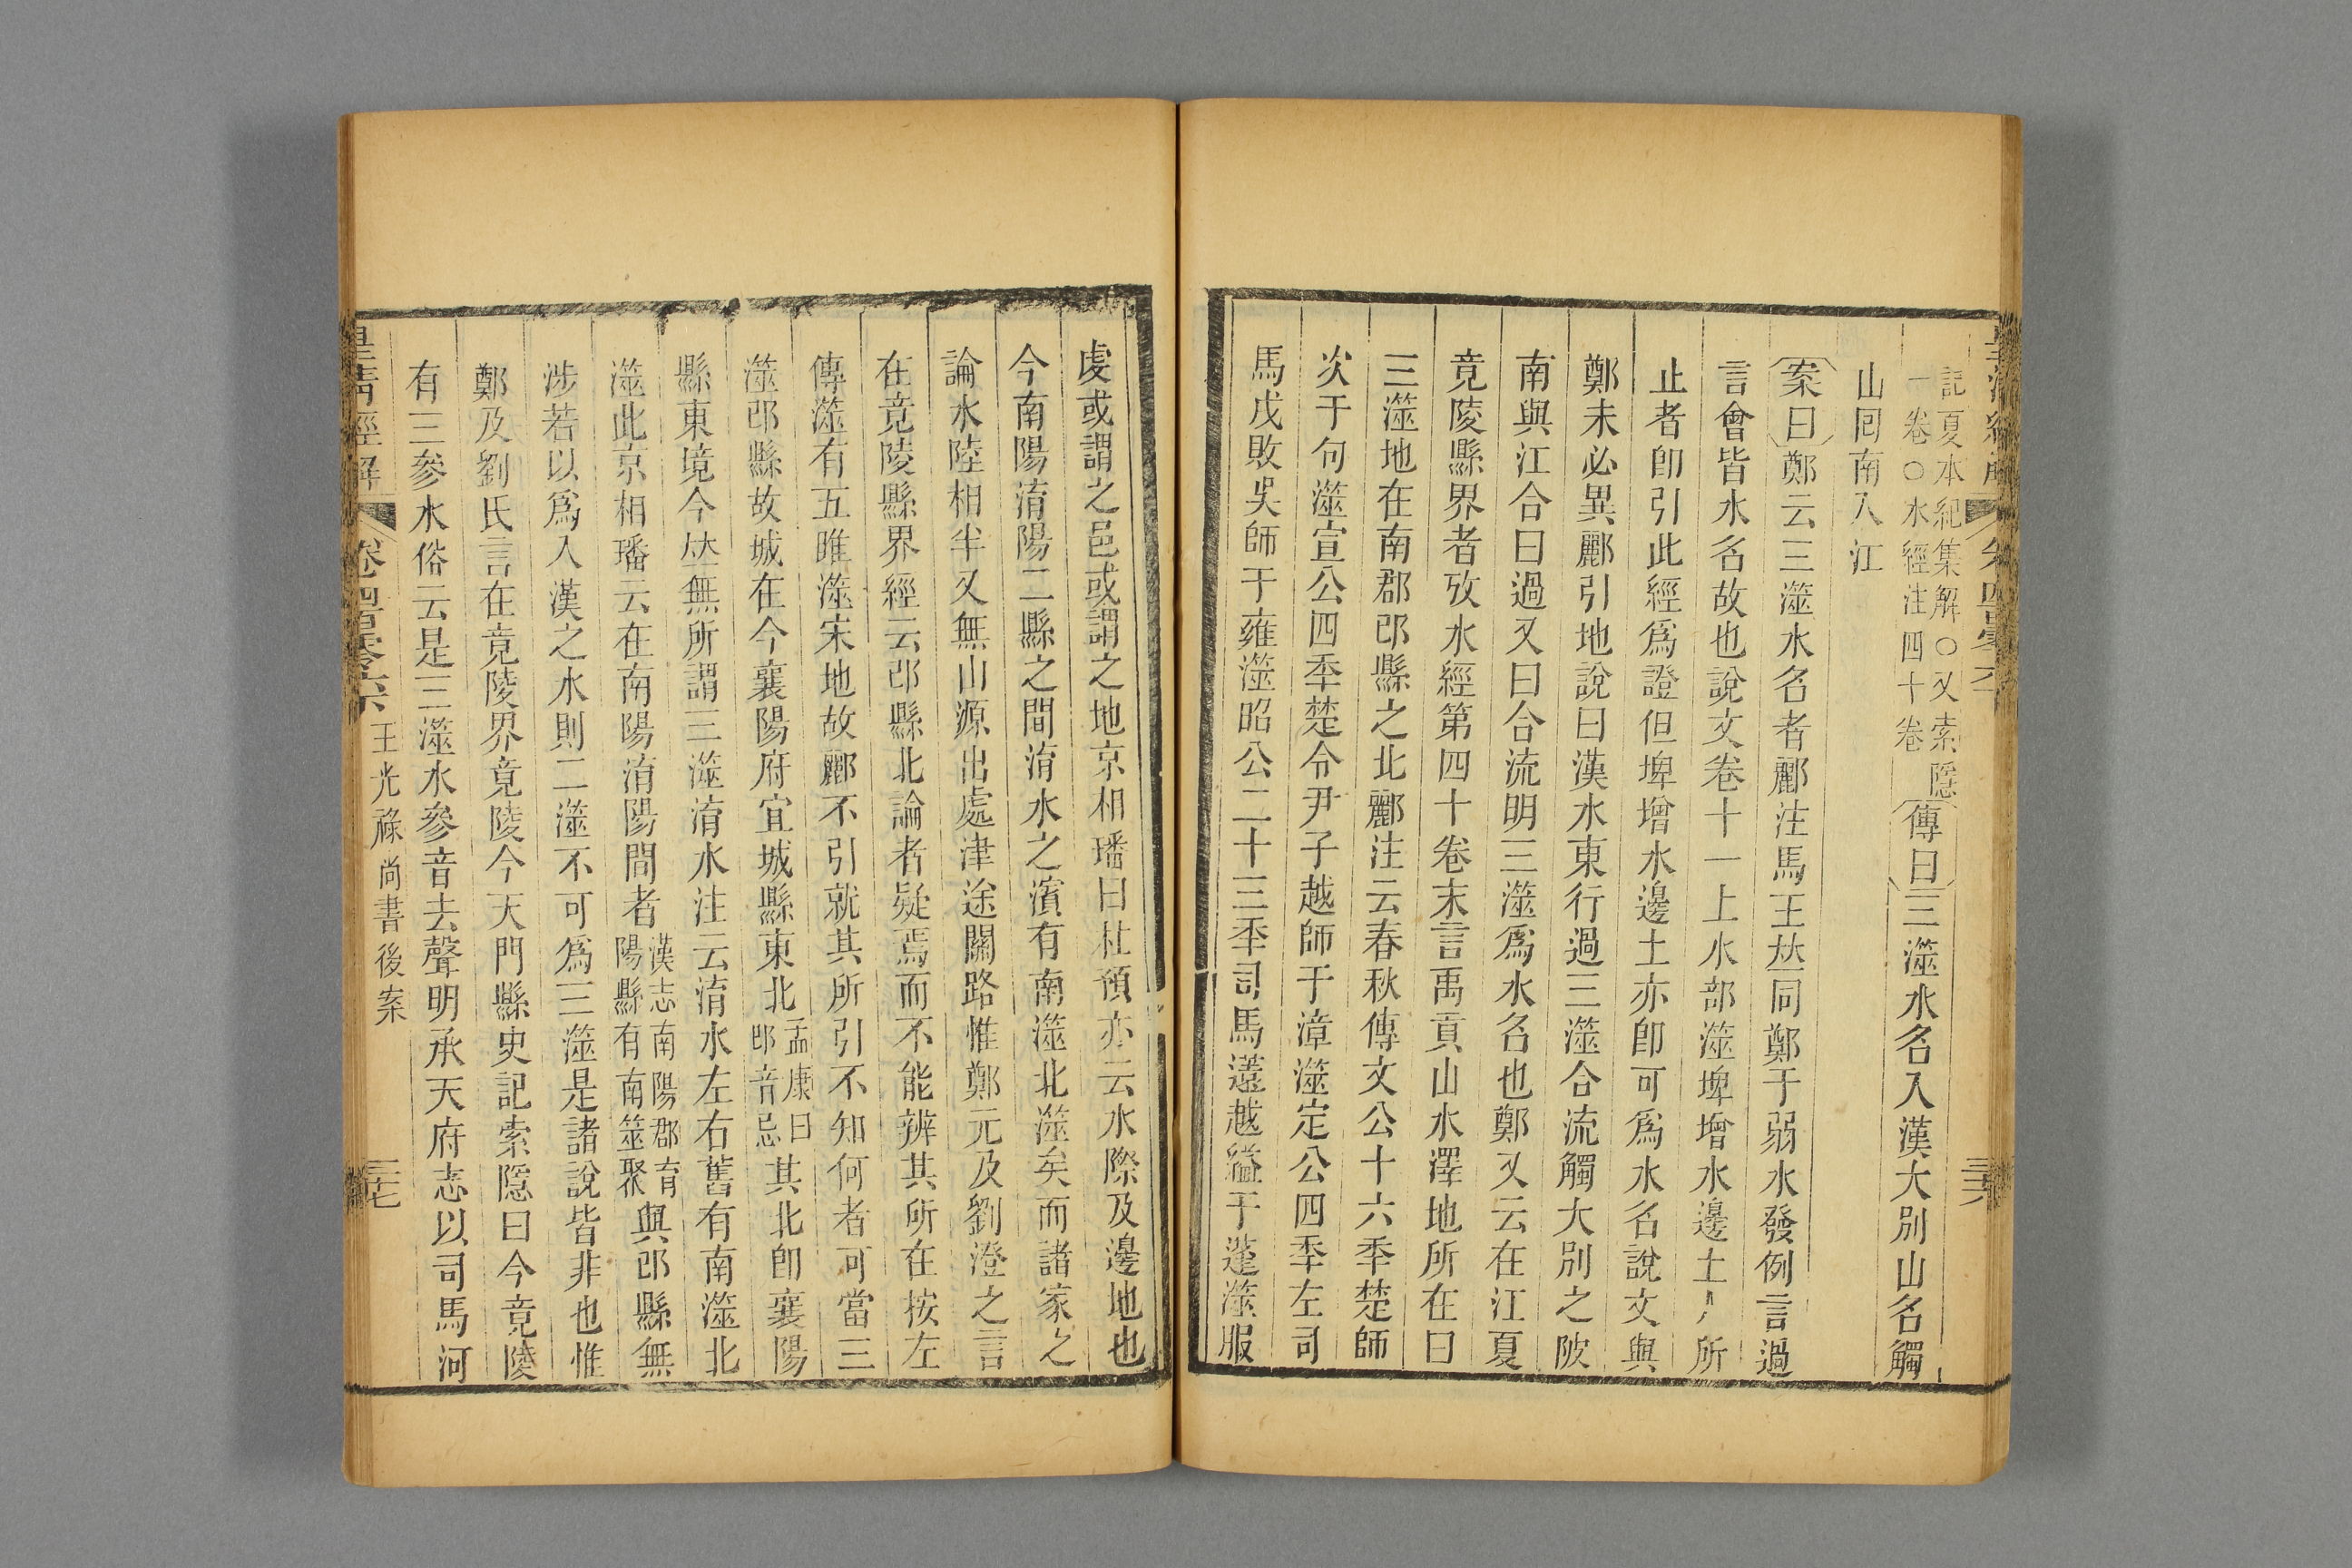 記夏本紀集解○又索隱
一卷○水經注四十卷
傳曰三澨水名入漢大別山名觸
山囘南入江
案曰鄭云三澨水名者酈注馬王𠀤同鄭于弱水發例言過
言會皆水名故也說文卷十一上水部澨埤增水邊土人所
止者卽引此經爲證但埤增水邊土亦卽可爲水名說文與
鄭未必異酈引地說曰漢水東行過三澨合流觸大別之陂
南與江合曰過又曰合流明三澨爲水名也鄭又云在江夏
竟陵縣界者攷水經第四十卷末言禹貢山水澤地所在曰
三澨地在南郡邔縣之北酈注云春秋傳文公十六季楚師
次于句澨宣公四季楚令尹子越師于漳澨定公四季左司
馬戌敗吳師于雍澨昭公二十三季司馬薳越縊于薳澨服
皇清經解
卷四百零六
王光祿尚書後案
三十七
虔或謂之邑或謂之地京相璠曰杜預亦云水際及邊地也
今南陽淯陽二縣之間淯水之濱有南澨北澨矣而諸家之
論水陸相半又無山源出處津途關路惟鄭元及劉澄之言
在竟陵縣界經云邔縣北論者疑焉而不能辨其所在按左
傳澨有五雎澨宋地故酈不引就其所引不知何者可當三
澨邔縣故城在今襄陽府宜城縣東北
孟康曰
邔音忌
其北卽襄陽
縣東境今𠀤無所謂三澨淯水注云淯水左右舊有南澨北
澨此京相璠云在南陽淯陽間者
漢志南陽郡育
陽縣有南筮聚
與邔縣無
涉若以爲入漢之水則二澨不可爲三澨是諸說皆非也惟
鄭及劉氏言在竟陵界竟陵今天門縣史記索隱曰今竟陵
有三參水俗云是三澨水參音去聲明承天府志以司馬河